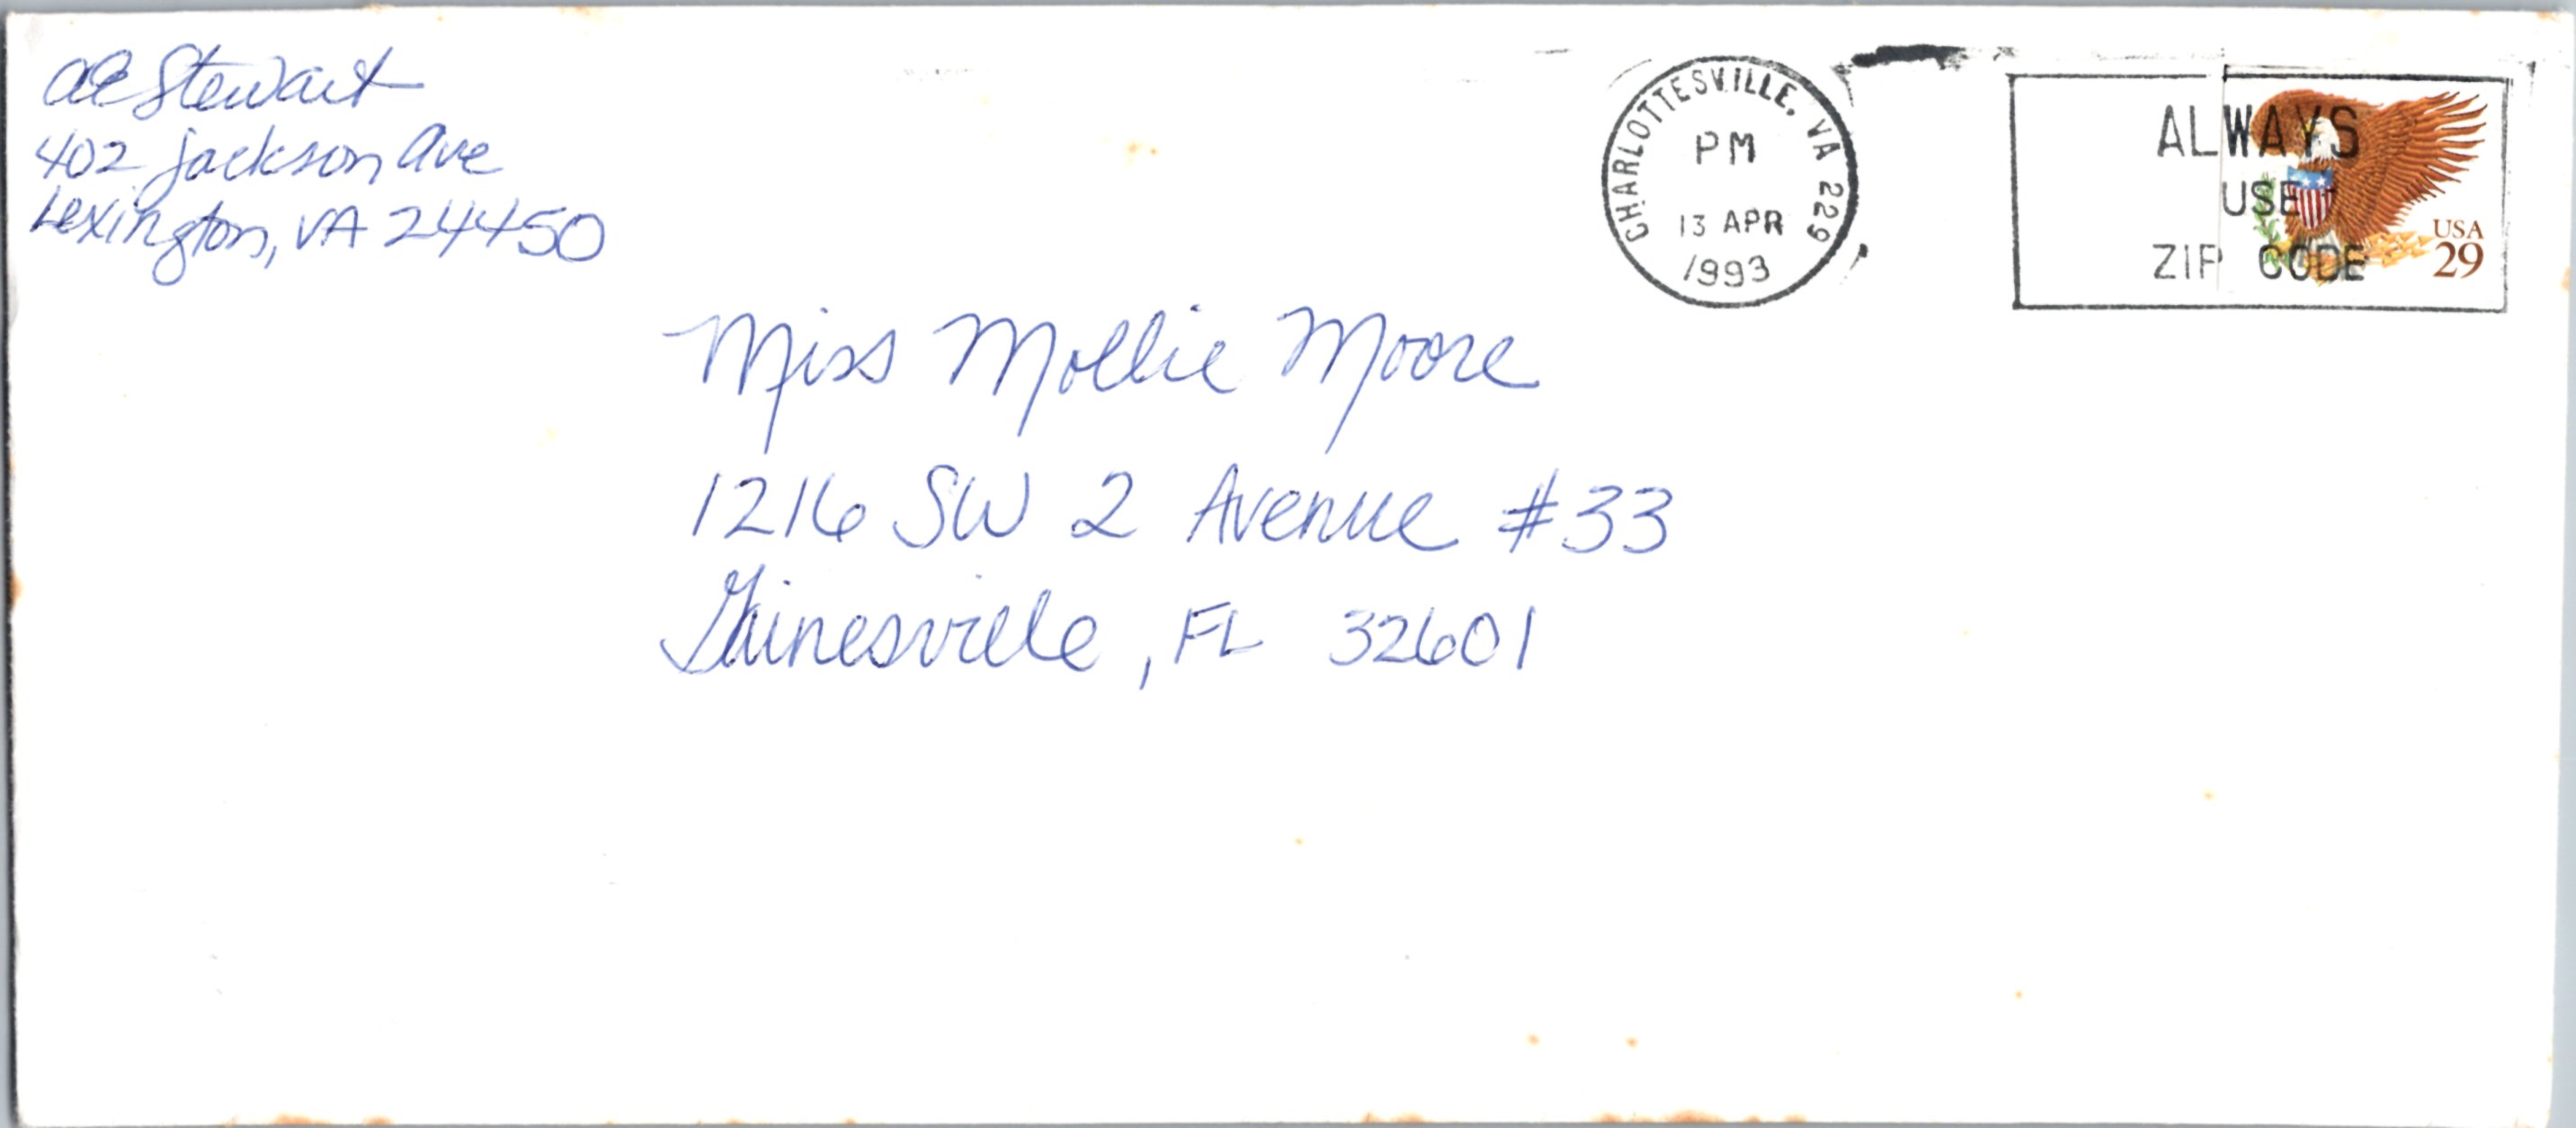 ae Stewart
402 Jackson Ave
Lexington, VA 24450
CHARLOTTESVILLE, VA 229
PM
13 APR
1993
ALWAYS
USE
ZIP CODE
USA
29
Miss Mollie Moore
1216 SW 2 Avenue #33
Gainesville, FL 32601